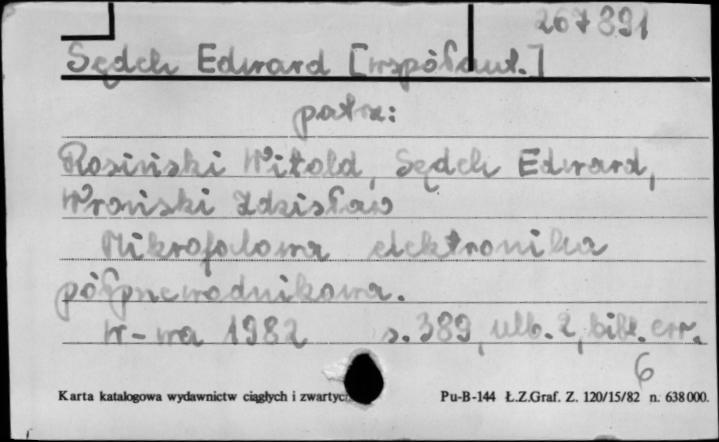 267891
Sędek Edward [współaut.]
patrz:
Rosiński Witold, Sędek Edward,
Wroński Zdzisław
Mikrofalowa elektronika
półprzewodnikowa.
W-wa 1982 s. 389, ulb. 2, bibl. err.
6
Karta katalogowa wydawnictw ciągłych i zwartyc Pu-B-144 Ł.Z.Graf. Z. 120/15/82 n. 638000.